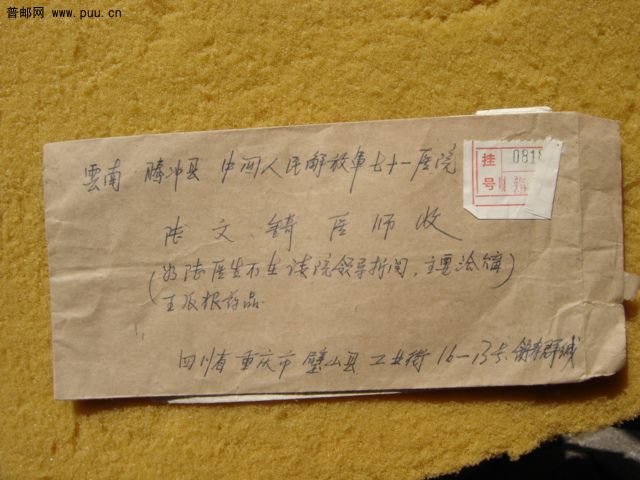 普邮网 www.puu.cn
雲南 腾冲县 中国人民解放軍七十一医院
挂 0818
号
陆文錡医师收
(如陆医生不在请院领导拆阅,主要洽
王张根药品
四川省重庆市璧山县工业街16-13号